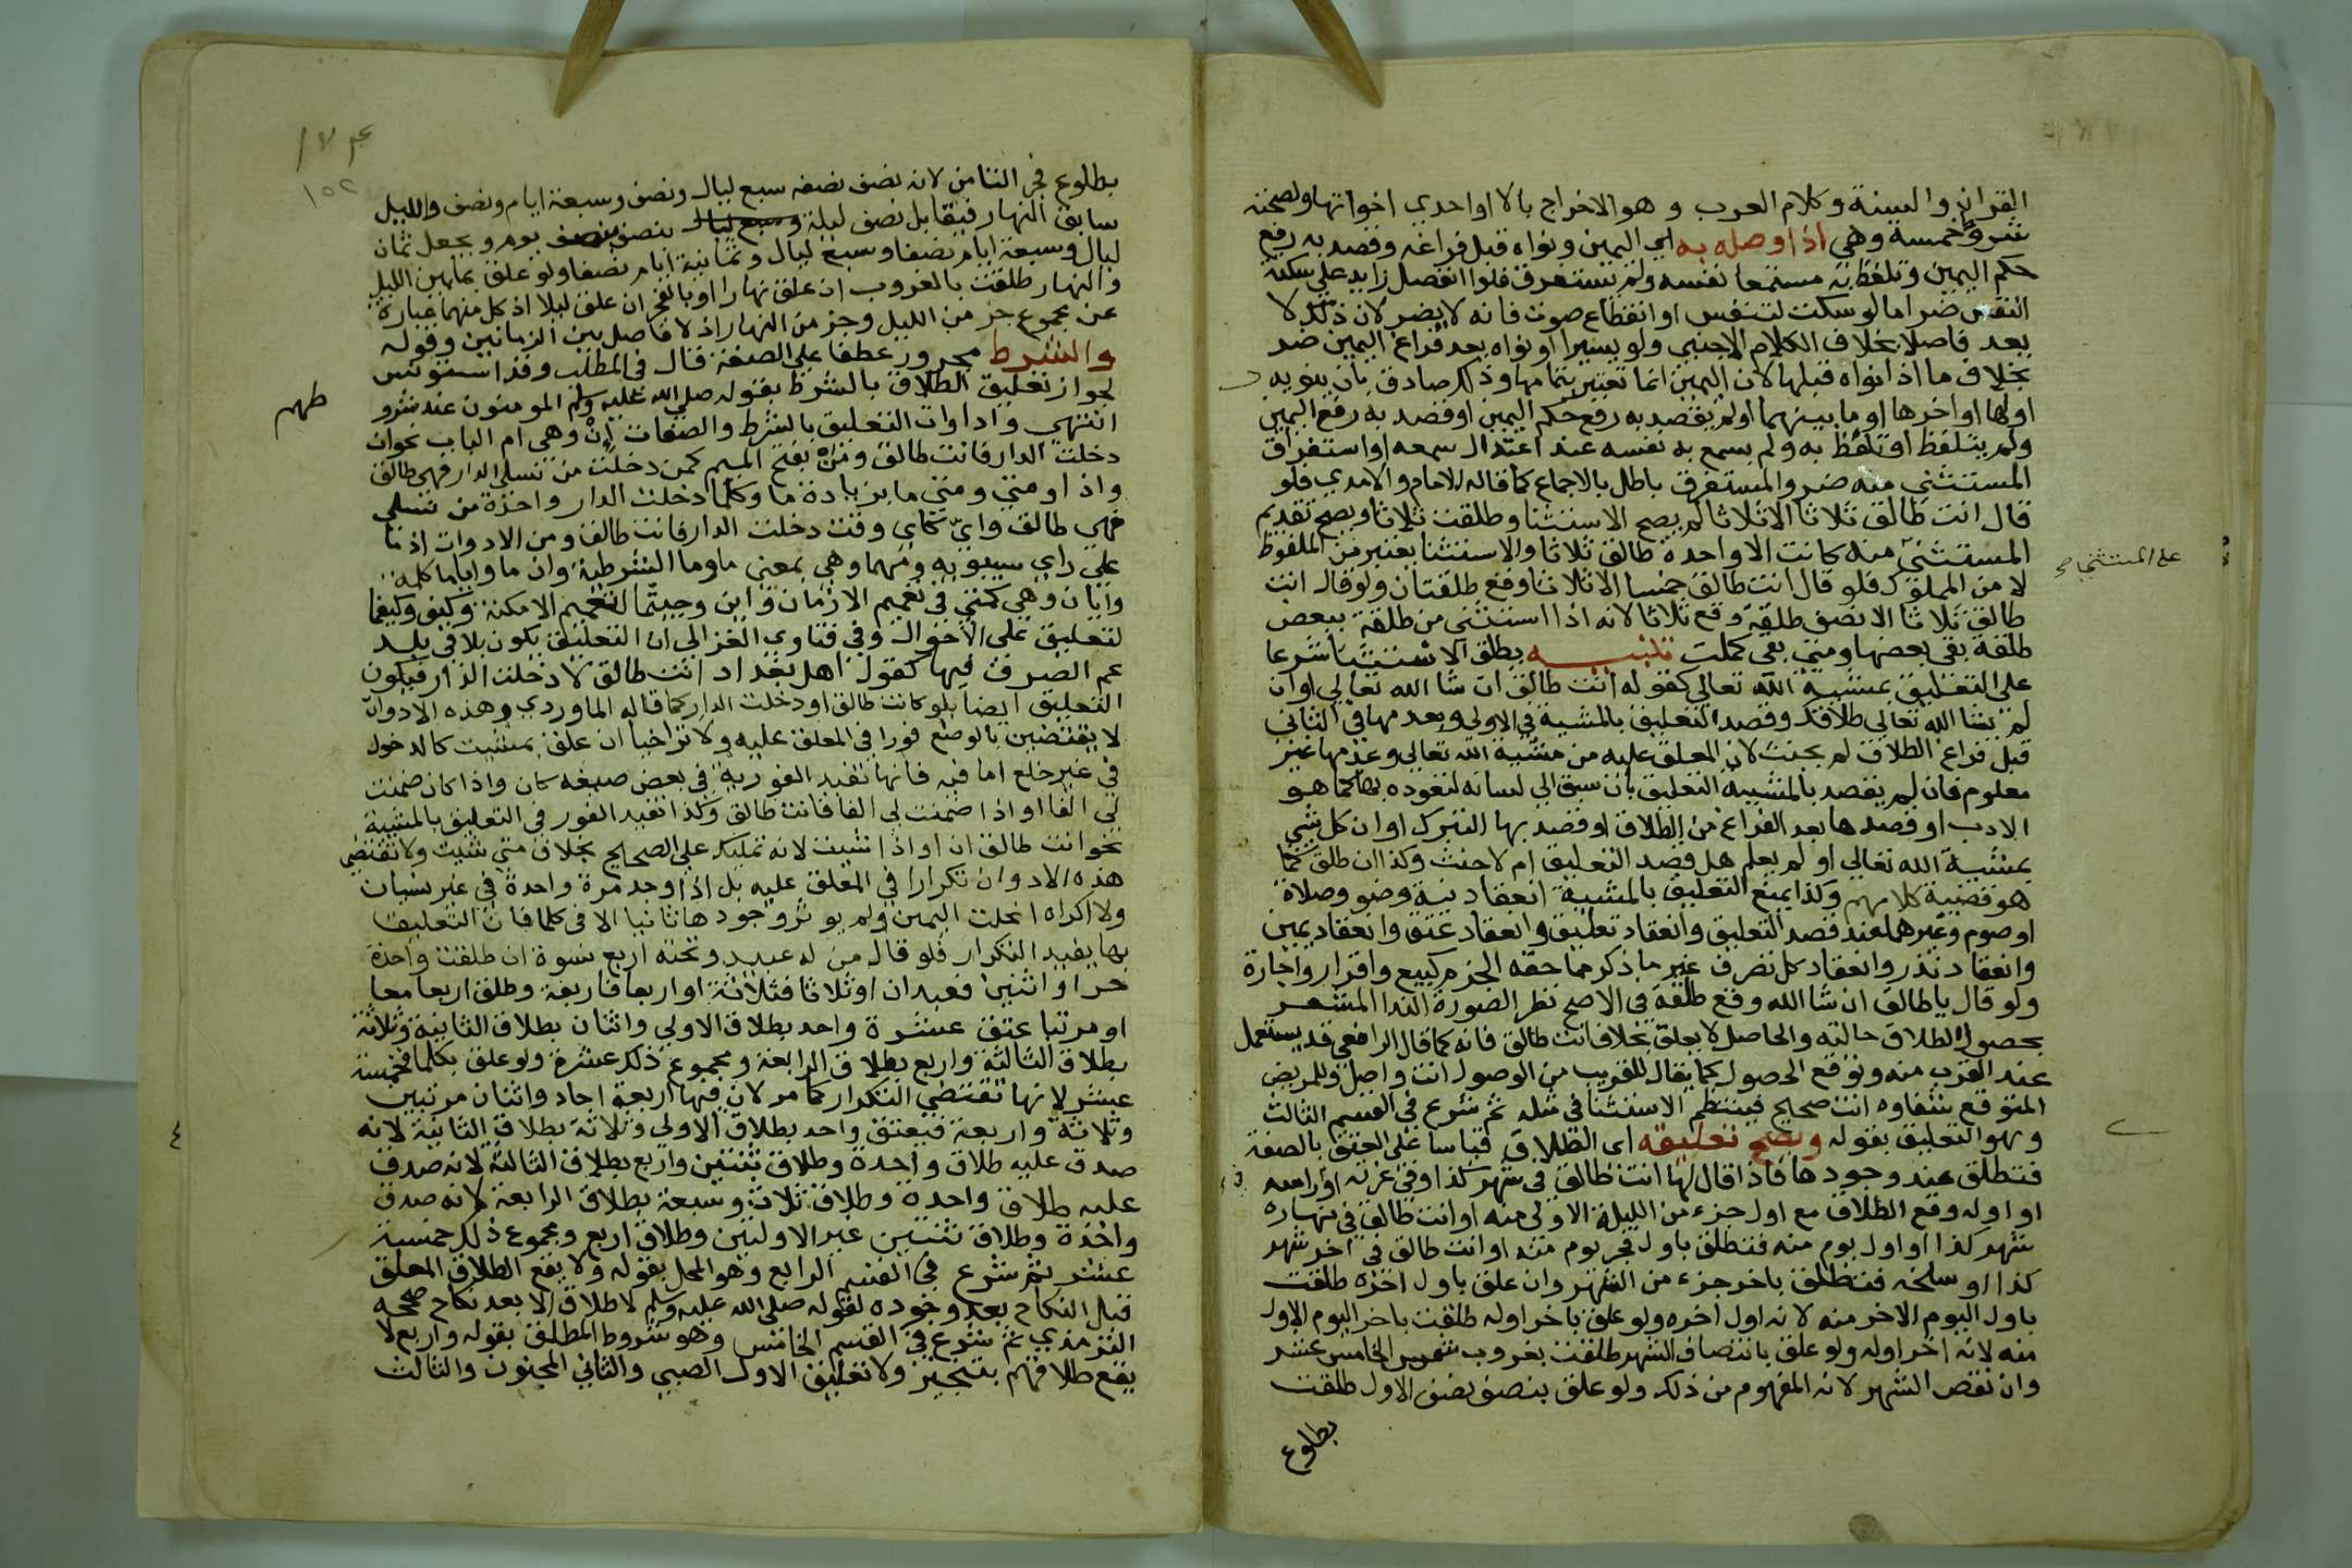 القران والسنة وكلام العرب وهو الاخراج بالا او احدي اخواتها ولصحته
شروط خمسة وهي اذا وصله به اي اليمين ونواه قبل فراغه وقصد به رفع
حكم اليمين وتلفظ به مستمعا نفسه ولم يستغرق فلو انفصل زايد علي سكتة
النفس ضر اما لو سكت لتنفس او انقطاع صوت فانه لا يضر لان ذلك لا
يعد فاصلا بخلاف الكلام الاجنبي ولو يسيرا او نواه بعد فراغ اليمين ضر
بخلاف ما اذا نواه قبلها لان اليمين انما تعتبر بتمامها وذلك صادق بان ينويه
اولها او اخرها او ما بينهما او لم يقصد به رفع حكم اليمين او قصد به رفع اليمين
ولم يتلفظ او تلفظ به ولم يسمع به نفسه عند اعتدال سمعه او استغراق
المستثني منه ضر والمستغرق باطل بالاجماع كما قاله الامام والامدي فلو
قال انت طالق ثلاثا الا ثلاثا لم يصح الاستثنا وطلقت ثلاثا ويصح تقديم
المستثني منه كانت الا واحدة طالق ثلاثا والاستثنا يعتبر من الملفوظ
على المستثني صح
لا من المملوك فلو قال انت طالق خمسا الا ثلاثا وقع طلقتان ولو قال انت
طالق ثلاثا الا نصف طلقة وقع ثلاثا لانه اذا استثني من طلقة ببعض
طلقة بقي بعضها ومتي بقي كملت تنبيه يطلق الاستثنا شرعا
علي التعليق بمشيية الله تعالي كقوله انت طالق ان شا الله تعالي او ان
لم يشا الله تعالي طلاقك وقصد التعليق بالمشية في الاولي وبعدمها في الثاني
قبل فراغ الطلاق لم يحنث لان المعلق عليه من مشية الله تعالي وعدمها غير
معلوم فان لم يقصد بالمشيية التعليق بان سبق الي لسانه لتعوده بها كما هو
الادب او قصدها بعد الفراغ من الطلاق او قصد بها التبرك او ان كل شي
بمشية الله تعالي او لم يعلم هل قصد التعليق ام لا حنث وكذا ان طلق كما
هو قضية كلامهم وكذا يمنع التعليق بالمشيية انعقاد نية وضو وصلاة
او صوم وغيرهما عند قصد التعليق وانعقاد تعليق وانعقاد عتق وانعقاد يمين
وانعقاد نذر وانعقاد كل تصرف غير ما ذكر مما حقه الجزم كبيع واقرار واجارة
ولو قال يا طالق ان شا الله وقع طلقة في الاصح نظر الصورة الندا المشعر
بحصول الطلاق حالته والحاصل لا يعلق بخلاف انت طالق فانه كما قال الرافعي قد يستعمل
عند القرب منه وتوقع الحصول كما يقال للقريب من الوصول انت واصل وللمريض
المتوقع شفاوه انت صحيح فينتظم الاستثنا في مثله ثم شرع في القسم الثالث
وهو التعليق بقوله ويصح تعليقه اي الطلاق قياسا علي العتق بالصفة
فتطلق عند وجودها فاذا قال لها انت طالق في شهر كذا او في غرته او راسه
او اوله وقع الطلاق مع اول جزء من الليلة الاولي منه او انت طالق في نهاره
شهر كذا او اول يوم منه فتطلق باول فجر يوم منه او انت طالق في اخر شهر
كذا او سلخه فتطلق باخر جزء من الشهر وان علق باول اخره طلقت
باول اليوم الاخر منه لانه اول اخره ولو علق باخر اوله طلقت باخر اليوم الاول
منه لانه اخر اوله ولو علق بانتصاف الشهر طلقت بغروب شمس الخامس عشر
وان نقص الشهر لانه المفهوم من ذلك ولو علق بنصف نصف الاول طلقت
بطلوع
١٧٤
١٥٢
بطلوع فجر الثامن لانه نصف نصفه سبع ليال ونصف وسبعة ايام ونصف والليل
سابق النهار فيقابل نصف ليلة وسبع ليال بنصف بنصف يوم ويجعل ثمان
ليال وسبعة ايام نصفا وسبع ليال وثمانية ايام نصفا ولو علق بما بين الليل
والنهار طلقت بالغروب ان علق نهارا او بالفجر ان علق ليلا اذ كل منهما عبارة
عن مجموع جزء من الليل وجزء من النهار اذ لا فاصل بين الزمانين وقوله
والشرط مجرور عطفا علي الصفة قال في المطلب وقد استونس
لجواز تعليق الطلاق بالشرط بقوله صلي الله عليه وسلم المومنون عند شرو
طهم
انتهي وادوات التعليق بالشرط والصفات إنْ وهي ام الباب نحو ان
دخلت الدار فانت طالق ومَنْ بفتح الميم كمن دخلت من نسلي الدار فهي طالق
واذا ومتي ومتي ما بزيادة ما وكلما دخلت الدار واحدة من نسلي
فهي طالق وايّ كاي وقت دخلت الدار فانت طالق ومن الادوات اذ ما
علي راي سيبويه ومهما وهي بمعني ما وما الشرطية وان ما واياما كلمة
وايان وهي كمتي في تعميم الازمان واين وحيثما لتعميم الامكنة وكيف وكيفما
لتعليق علي الاحوال وفي فتاوي الغزالي ان التعليق يكون بلا في بلد
عم العرف فيها كقول اهل بغداد انت طالق لا دخلت الدار فيكون
التعليق ايضا بلو كانت طالق لو دخلت الدار كما قاله الماوردي وهذه الادوات
لا يقتضين بالوضع فورا في المعلق عليه ولا تراخيا ان علق بمثبت كالدخول
في غير خلع اما فيه فانها تفيد الفورية في بعض صيغه كان واذا كان ضمنت
لي الفا او اذا ضمنت لي الفا فانت طالق وكذا تفيد الفور في التعليق بالمشية
نحو انت طالق ان او اذا شيت لانه تمليك علي الصحيح بخلاف متي شيت ولا تقتضي
هذه الادوات تكرارا في المعلق عليه بل اذا وجد مرة واحدة في غير نسيان
ولا اكراه انحلت اليمين ولم يوثر وجودها ثانيا الا في كلما فان التعليق
بها يفيد التكرار فلو قال من له عبيد وتحته اربع نسوة ان طلقت واحدة
حر او اثنين فعبدان او ثلاثا فثلاثة او اربعا فاربعة وطلق اربعا معا
او مرتبا عتق عشرة واحد بطلاق الاولي واثنان بطلاق الثانية وثلاثة
بطلاق الثالثة واربع بطلاق الرابعة ومجموع ذلك عشرة ولو علق بكلما فخمسة
عشر لانها تقتضي التكرار كما مر لان فيها اربعة احاد واثنان مرتين
وثلاثة واربعة فيعتق واحد بطلاق الاولي وثلاثة بطلاق الثانية لانه
صدق عليه طلاق واحدة وطلاق ثنتين واربع بطلاق الثالثة لانه صدق
عليه طلاق واحدة وطلاق ثلاث وسبعة بطلاق الرابعة لانه صدق
واحدة وطلاق ثنتين غير الاوليين وطلاق اربع ومجموع ذلك خمسة
عشر ثم شرع في القسم الرابع وهو المحل بقوله ولا يقع الطلاق المعلق
قبل النكاح بعد وجوده لقوله صلي الله عليه وسلم لا طلاق الا بعد نكاح صححه
الترمذي ثم شرع في القسم الخامس وهو شروط المطلق بقوله واربع لا
يقع طلاقهم بتنجيز ولا تعليق الاول الصبي والثاني المجنون والثالث